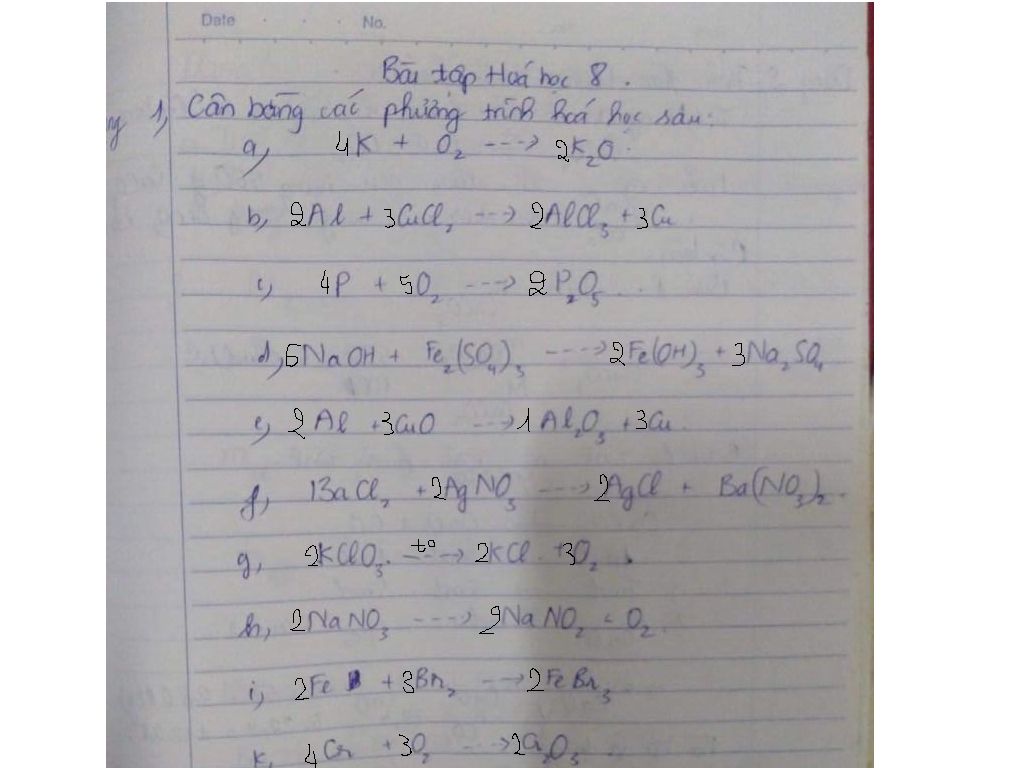 Date . . . No.
Bài tập Hoá học 8.
1, Cân bằng các phương trình hoá học sau:
a, 4K + O₂ ---> 2K₂O
b, 2Al + 3CuCl₂ ---> 2AlCl₃ + 3Cu
c, 4P + 5O₂ ---> 2P₂O₅
d, 6NaOH + Fe₂(SO₄)₃ ---> 2Fe(OH)₃ + 3Na₂SO₄
e, 2Al + 3CuO ---> 1Al₂O₃ + 3Cu
f, BaCl₂ + 2AgNO₃ ---> 2AgCl + Ba(NO₃)₂.
g, 2KClO₃ -t°-> 2KCl + 3O₂
h, 2NaNO₃ ---> 2NaNO₂ + O₂
i, 2Fe + 3Br₂ ---> 2FeBr₃
k, 4Cr + 3O₂ ---> 2Cr₂O₃